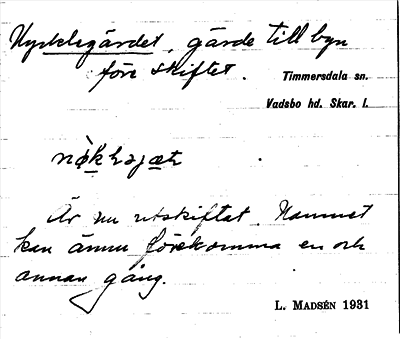 Nycklegärdet, gärde till byn
före skiftet.
Timmersdala sn.
Vadsbo hd. Skar. l.
Är nu utskiftat. Namnet
kan ännu förekomma en och
annan gång.
L. MADSÉN 1931